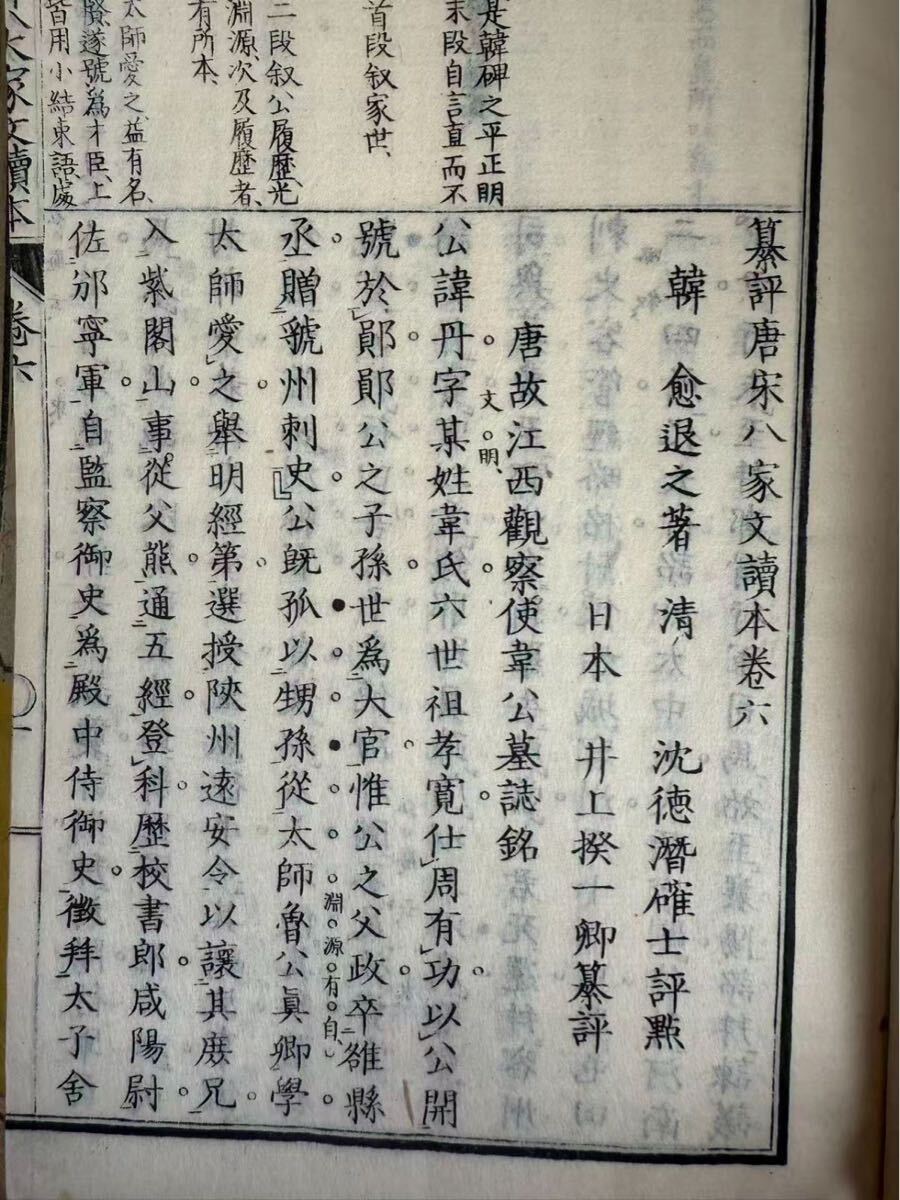 是韓碑之平正明
末段自言直而不
首段叙家世、
二段叙公履歷、光
淵源、次及履歷者、
有所本、
太師愛之、益有名、
賢、遂號為才臣、上
皆用小結束語處
纂評唐宋八家文讀本卷六
韓愈退之著 清 沈德潛確士評點
日本 井上揆一卿纂評
唐故江西觀察使韋公墓誌銘
文明、
公諱丹字某姓韋氏六世祖孝寬仕周有功以公開
號於鄖鄖公之子孫世為大官惟公之父政卒雒縣
淵源有自、
丞贈虢州刺史公既孤以甥孫從太師魯公眞卿學
太師愛之舉明經第選授陝州遠安令以讓其庶兄
入紫閣山事從父熊通五經登科歷校書郎咸陽尉
佐邠寧軍自監察御史為殿中侍御史徵拜太子舍
八大家文讀本 卷六